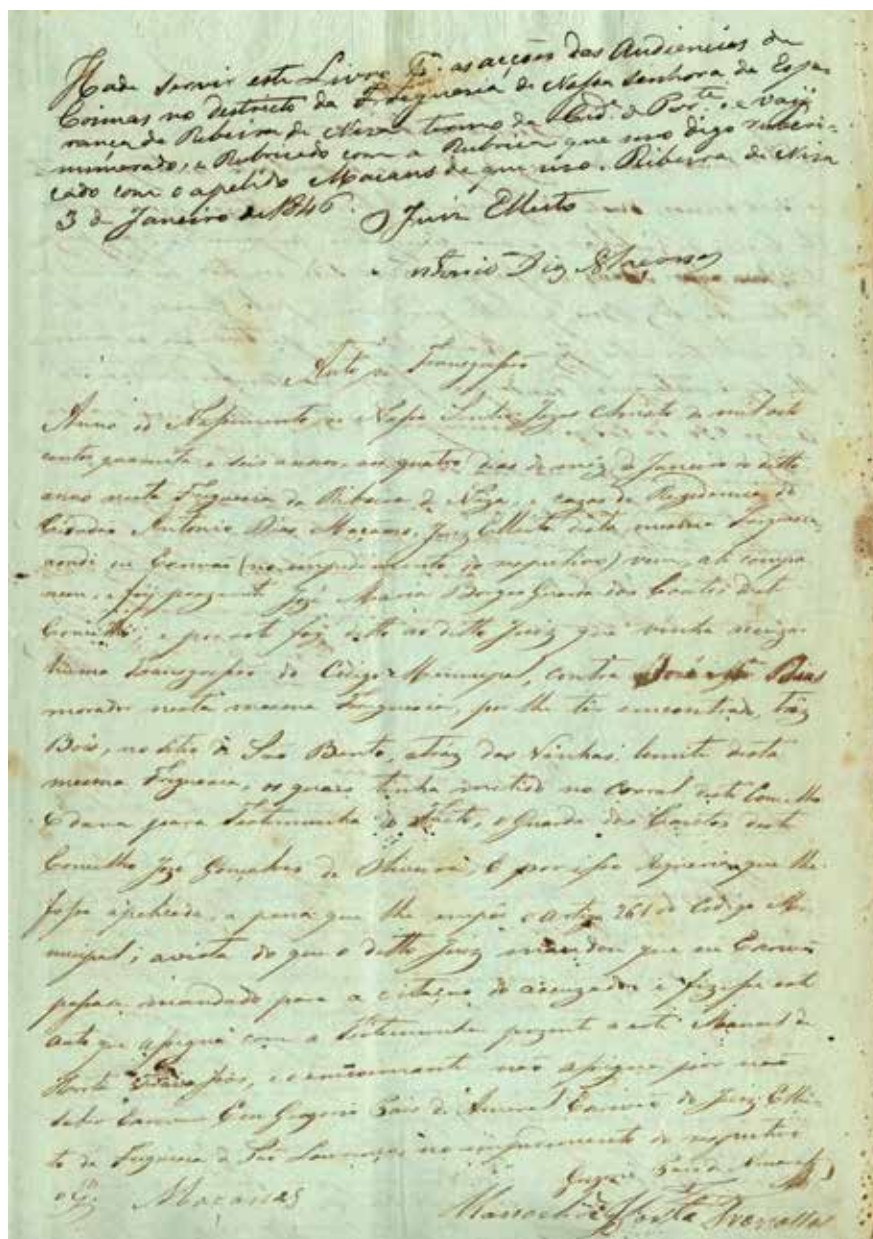 Hade servir este Livro pª. as acções das Audiencias de
Coimas no Destricto da Freguesia de Nossa Senhora da Espe-
rança da Ribeira de Niza termo da Cidᵉ. de Portᵉ. e vai
numerado, e Rubricado com a Rubrica que uso digo rubri-
cado com o apelido Maçans de que uso. Ribeira de Niza
3 de Janeiro de 1846.
O Juiz Elleito
Antonio Diaz Maçans
Auto de Transgressão
Anno do Nascimento de Nosso Senhor Jezus Christo de mil oito
centos quarenta e seis annos, aos quatro dias do mez de Janeiro do ditto
anno nesta Freguesia da Ribeira de Niza, e cazas de Rezidencia do
Cidadão Antonio Dias Maçans, Juiz Elleito desta mesma Freguesia,
aondi eu Escrivão (no empedimento do respectivo) vim, ahi compa
receu, e foi prezente José Maria Borges Guarda dos Coutos deste
Concelho e por este foi ditto ao ditto Juiz que vinha
huma Transgressão do Codigo Municipal, contra José Braz
morador nesta mesma Freguesia, por lhe ter encontrado, trez
Bois, no sitio de São Bento, atraz das Vinhas, lemite desta
mesma Freguesia, os quaes tinha metido no corral deste Concelho
E dava para Testemunha do Facto, o Guarda dos Coutos deste
Concelho Joze Gonçalves de Oliveira, E por isso requeria que lhe
fosse apelicada, a pena que lhe empõe o artigo 261 do Codigo Mu-
nicipal; avista do que o ditto Juiz mandou que eu Escrivão
passase mandado para a citação do acuzado e fizesse este
auto que assigna com a Testemunha prezente a este Manoel da
Horta, e o não assigna por não
saber Escrever Eu Gregorio de Amaral Escrivão do Juiz Ellei-
to da Freguesia de São Lourenço, no impedimento do respectivo
Maçans
Manoel da Horta